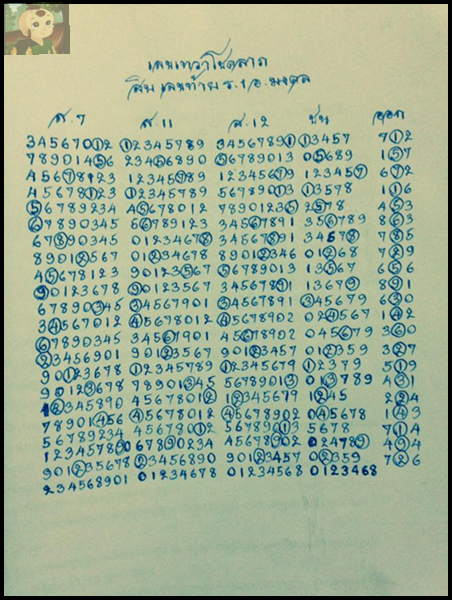 เลขเทวาโชคลาภ
สิบ เลขท้าย ร.1 อ.มงคล
ส.7 ส.11 ส.12 ชน ออก
34567012 12345789 345678911 13457 712
78901456 23456890 56789013 05689 157
45678123 12345789 12345679 123457 672
45678123 12345789 56789013 13578 116
56789234 45678012 78901235 2578 453
67890345 56789123 34567891 356789 863
67890345 01234678 34567891 34578 785
89012567 01234678 89012346 01268 729
45678123 90123567 56789013 13567 656
90123678 90123567 34567891 13679 891
67890345 34567901 34567891 345679 630
34567012 45678012 45678902 024567 142
67890345 34567901 45678902 045679 360
23456901 90123567 90123457 012359 327
90123678 12345789 12345679 12379 519
90123678 78901345 56789013 013789 431
12345890 45678012 12345679 1245 224
78901456 45678012 45678902 045678 143
56789234 45678012 56789013 5678 714
123457890 67890234 45678902 024789 494
901235678 23456890 90123457 02359 726
234568901 01234678 01234568 0123468